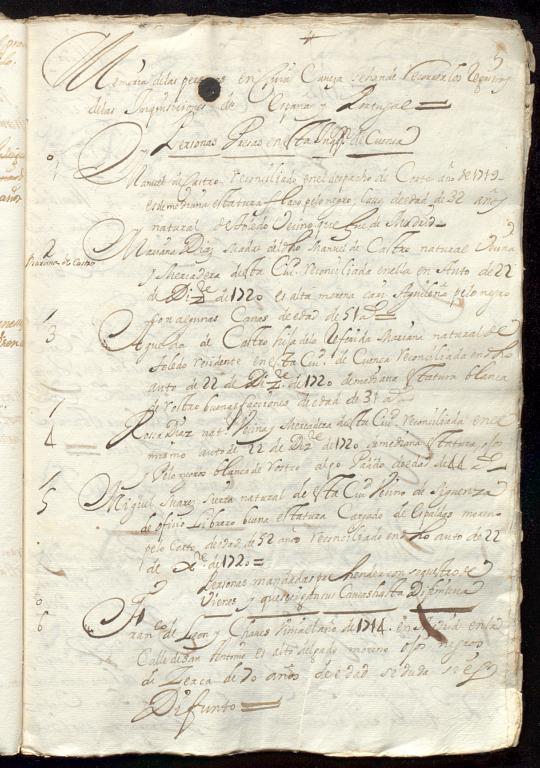 Memoria de las personas en cuia Caveza se han de recorer los registros
de las Inquisiciones de España y Portugal
Personas Presas en esta Inqq.on de Cuenca
1 Manuel de Castro reconciliado en el despacho de Corte año de 1719
es de mediana estatura flaco pelo negro edad de 32 años
natural de Toledo Vecino que fue de Madrid
2 Mariana Diaz madre del dho Manuel de Castro natural Vecina
Mariana de Castro
y Mercadera desta Ciu.d reconciliada en ella en Auto de 22
de Di.re de 1720 es alta morena cari Aguileña pelo negro
con algunas Canas de edad de 51 a.s
3 Agueda de Castro hija de la referida Mariana natural de
Toledo residente en esta Ciu.d de Cuenca reconciliada en dho
auto de 22 de Diz.e de 1720 de mediana estatura blanca
de rostro buenas facciones de edad de 31 a.s
4 Rosa Diaz nat.l Vecina y Mercadera desta Ciu.d reconciliada en el
mismo auto de 22 de Diz.e de 1720 de mediana estatura, ojos
y Pelo negros blanca de rostro algo de edad de 44 a.s
5 Miguel Suarez natural de esta Ciu.d Vecino de Siguenza
de oficio Librero buena estatura Cargado de espaldas moreno
pelo Corto de edad de 52 años reconciliado en dho auto de 22
de x.re de 1720
Personas mandadas prender con sequestro de
Vienes y que siguen sus Causas hasta Difinitiva
6 Fran.co de Leon y Chaves Vivia el año de 1714 en en la
Calle de San Antonio es alto delgado moreno ojos negros
de zerca de 70 años de edad se duda si es
Difunto